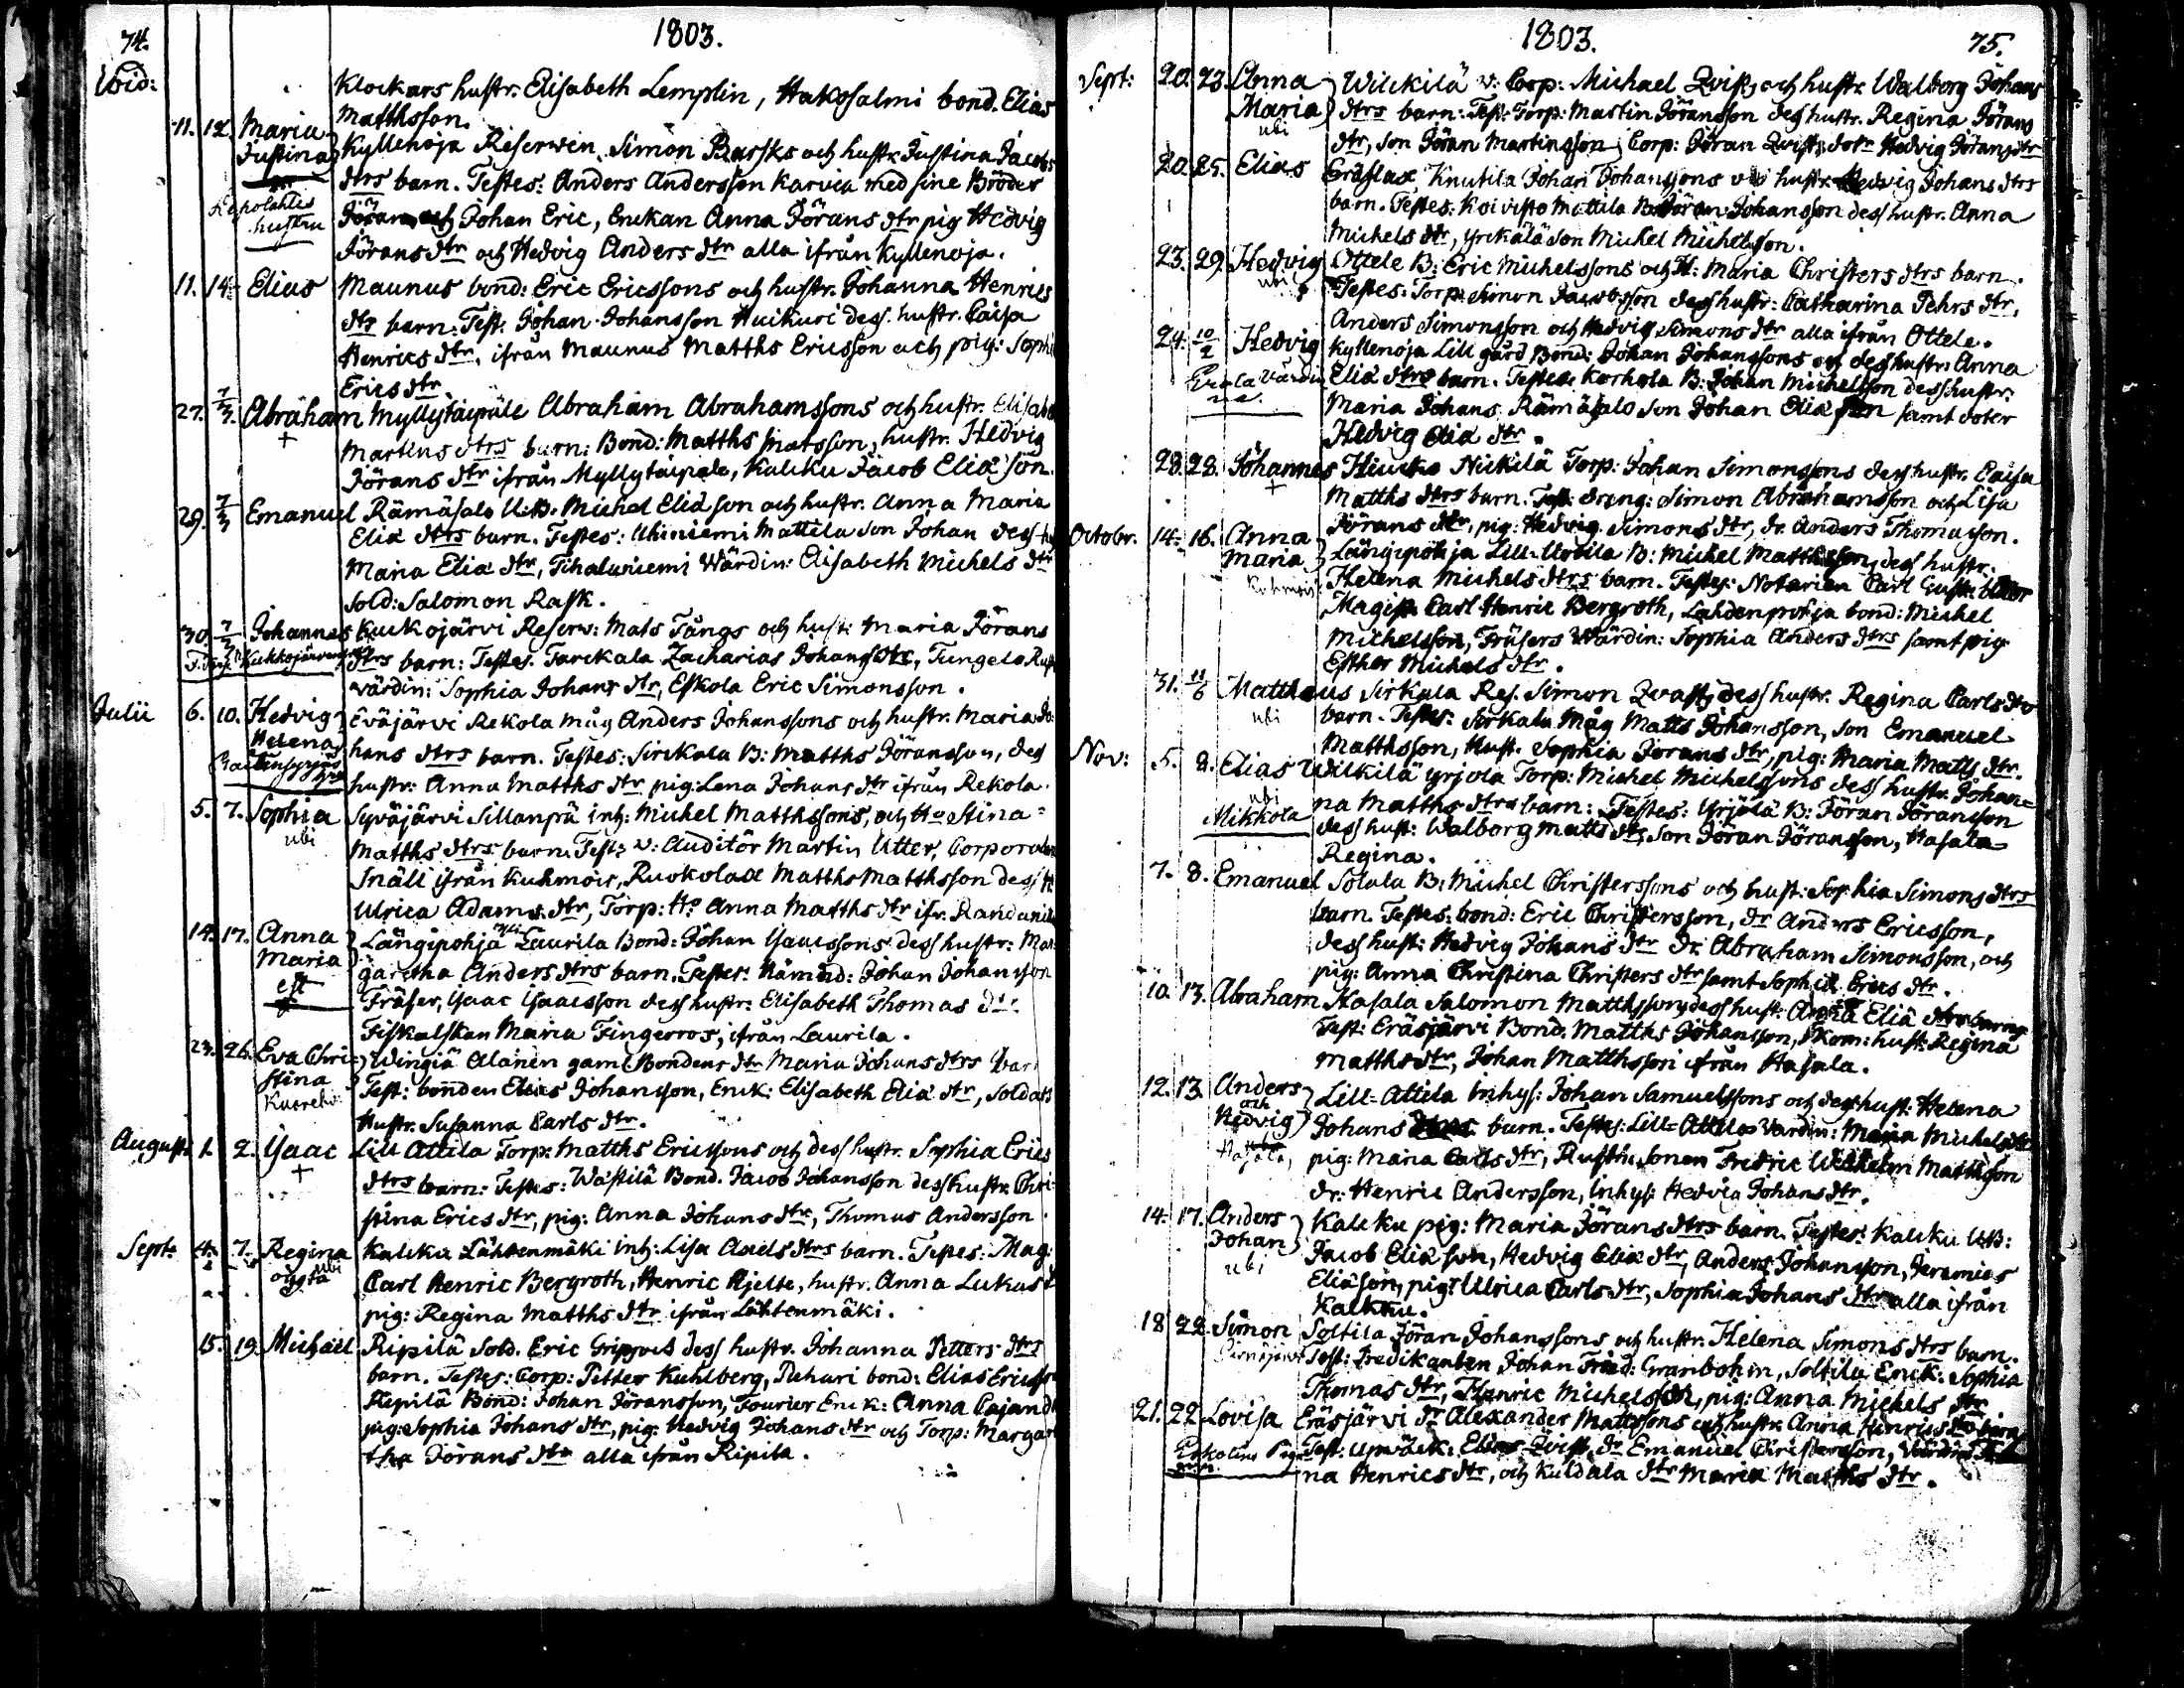 74.
1803.
Ibid:
Klockars hustr. Elisabeth Lemplin, Hakosalmi bond. Elias
Matthsson.
11. 12. Maria Kyllenoja Reserven Simon Barsks och hustr. Justina Jacobs
Justina dtrs barn. Testes: Anders Andersson Karvia med sine Bröder
Lepolahtis hustru
Jöran och Johan Eric, Enckan Anna Jörans dtr pig Hedvig
Jörans dtr och Hedvig Anders dtr alla ifrån Kyllenoja.
11. 14. Elias Maunus bond: Eric Ericssons och hustr. Johanna Henrics
dtr barn: Test. Johan Johansson Huikuri dess hustr. Caisa
Henrics dtr, ifrån Maunus Matths Ericsson och pig: Sophi
Erics dtr.
27. 7/3. Abraham Myllytaipale Abraham Abrahamssons och hustr. Elisab
+ Martins dtrs barn: Bond: Matths Matsson, hustr. Hedvig
Jörans dtr ifrån Myllytaipale, Kalcku Jacob Eliä son.
29. 7/3 Emanuel Rämäsalo U:B. Michel Eliä son och hustr. Anna Maria
Eliä dtrs barn. Testes: Uhiniemi Mattila son Johan dess
Maria Eliä dtr, Tihalaniemi Wärdin: Elisabeth Michels dtr
Sold: Salomon Rask.
30. 7/3 Johannes Kuckojärvi Reserv: Mats Tångs och hustr: Maria Jörans
Kuckkojärven dtrs barn: Testes. Tarckala Zacharias Johansson, Tungelo
wärdin: Sophia Johans dtr, Eskola Eric Simonsson.
Julii 6. 10. Hedvig Eväjärvi Rekola måg Anders Johanssons och hustr. Maria Jo-
Helena hans dtrs barn. Testes: Sirckala B: Matths Jöransson, dess
hustr: Anna Matths dtr pig: Lena Johans dtr ifrån Rekola.
5. 7. Sophia Syväjärvi Sillanpä inh: Michel Matthssons, och Ho Stina
ubi Matths dtrs barn. Test: v: Auditör Martin Utter, Corporalen
Snäll ifrån Kuhmois, Ruokolax Matths Matthsson dess H
Ulrica Adams dtr, Torp: Ho Anna Matths dtr ifr.
14. 17. Anna Längipohja Laurila Bond: Johan Isacssons dess hustr: Mar-
Maria garetha Anders dtrs barn. Testes: Nämnd: Johan Johansson
Träser, Isaac Isaacsson dess hustr: Elisabeth Thomas dtr
Fiskalskan Maria Fingerroos, ifrån Laurila.
23. 26. Eva Chri- Wingiä Alanen gaml Bondens dtr Maria Johans dtrs bar
stina Test: bonden Elias Johansson, Enck: Elisabeth Eliä dtr, Soldats
hustr. Susanna Carls dtr.
August: 1. 2. Isaac Lill Attila Torp: Matths Ericssons och dess hustr. Sophia Erics
+ dtrs barn: Testes: Wästilä Bond. Jacob Johansson dess hustr. Chri-
stina Erics dtr, pig: Anna Johans dtr, Thomas Andersson.
Sept: 4. 7. Regina Kalcku Lähtenmäki inh: Lisa Axels dtrs barn. Testes: Mag:
oägta ubi Carl Henric Bergroth, Henric Hjelte, hustr. Anna Lukas
pig: Regina Matths dtr ifrån Lähtenmäki.
15. 19. Michael Ripilä Sold. Eric Gripsvets dess hustr. Johanna Petters dtrs
barn. Testes: Corp: Petter Kuhlberg, Puhari bond: Elias Ericss
Ripilä Bond: Johan Jöransson, Fourier Enck: Anna Cajand
pig: Sophia Johans dtr, pig: Hedvig Johans dtr och Torp: Margar
tha Jörans dtr alla ifrån Ripila.
1803.
75.
Sept: 20. 23. Anna Wilckilä v: Corp: Michael Qvist, och hustr. Walborg Johans
Maria dtrs barn: Test: Torp: Martin Jöransson dess hustr. Regina Jörans
ubi dtr, son Jöran Martinsson, Corp: Jöran Qvists dotr Hedvig Jörans dtr
20. 25. Elias Eräslax Knutila Johan Johanssons och hustr. Hedvig Johans dtrs
barn. Testes: Koivisto Mattila Jöran Johansson dess hustr. Anna
Michels dtr, Yrckälä son Michel Michelsson.
23. 29. Hedvig Ottele B: Eric Michelssons och H: Maria Christers dtrs barn.
ubi Testes: Torp: Simon Jacobsson dess hustr: Catharina Pehrs dtr,
Anders Simonsson och Hedvig Simons dtr alla ifrån Ottele.
24. 10/2 Hedvig Kyllenoja Lill gård Bond: Johan Johanssons och dess hustr. Anna
Eliä dtrs barn. Testes: Korhola B: Johan Michelsson dess hustr:
Maria Johans Rämäsalo son Johan Eliä son samt doter
Hedvig Eliä dtr.
28. 28. Johannes Hiucko Nickilä Torp: Johan Simonssons dess hustr. Caisa
+ Matths dtrs barn. Test: dreng: Simon Abrahamsson och Lisa
Jörans dtr, pig: Hedvig Simons dtr, dr. Anders Thomasson.
Octobr. 14. 16. Anna Längipohja Lill-Urtila B: Michel Matthsson, dess hustr.
Maria Helena Michels dtrs barn. Testes: Notarien Carl Gust: Utter
Magist. Carl Henric Bergroth, Lahdenpohja bond: Michel
Michelsson, Träsers Wärdin: Sophia Anders dtrs samt pig
Esther Michels dtr.
31. 11/6 Matthaeus Sirkala Res. Simon Qvasts dess hustr. Regina Carls dtr
ubi barn. Testes: Sirkala Måg Matts Johansson, son Emanuel
Matthsson, Hust. Sophia Jörans dtr, pig: Maria Matts dtr.
Nov: 5. 8. Elias Wilkilä Yrjola Torp: Michel Michelssons dess hustr. Johan-
ubi na Matths dtrs barn: Testes: Yrjölä B: Jöran Jöransson
Mikkola dess hust: Walborg Matts dtr, son Jöran Jöransson, Hasala
Regina.
7. 8. Emanuel Solala B: Michel Christerssons och hust: Sophia Simons dtrs
barn. Testes: bond: Eric Christersson, dr Anders Ericsson,
dess hust: Hedvig Johans dtr dr. Abraham Simonsson, och
pig: Anna Christina Christers dtr samt Sophia Erics dtr.
10. 13. Abraham Hasala Salomon Matthssons dess hust: Anna Eliä dtrs barn
Test: Eräsjärvi Bond. Matths Johansson, Skom: hust: Regina
Matths dtr, Johan Matthsson ifrån Hasala.
12. 13. Anders Lill-Attila inhys: Johan Samuelssons och dess hust: Helena
och Hedvig Johans dtrs barn. Testes: Lill-Attila Wärdin: Maria Michels dtr
Hasala, pig: Maria Carls dtr, Rusth. Sonen Fredric Wilhelm Matthsson
dr: Henric Andersson, inhys: Hedvig Johans dtr.
14. 17. Anders Kalcku pig: Maria Jörans dtrs barn. Testes: Kalcku UB:
Johan Jacob Eliä son, Hedvig Eliä dtr, Anders Johansson, Jeremias
ubi Eliäson, pig: Ulrica Carls dtr, Sophia Johans dtr alla ifrån
Kalkku.
18 22 Simon Soltila Jöran Johanssons och hustr. Helena Simons dtrs barn.
Test: Predikanten Johan Fried: Granbohm, Soltila Enck: Sophia
Thomas dtr, Henric Michelsson, pig: Anna Michels dtr
21. 22 Lovisa Eräsjärvi dr Alexander Mattssons och hustr. Anna Henrics dtr barn
Test: Elias Qvist, dr Emanuel Christersson,
na Henrics dtr, och Kuldala dtr Maria Matths dtr.